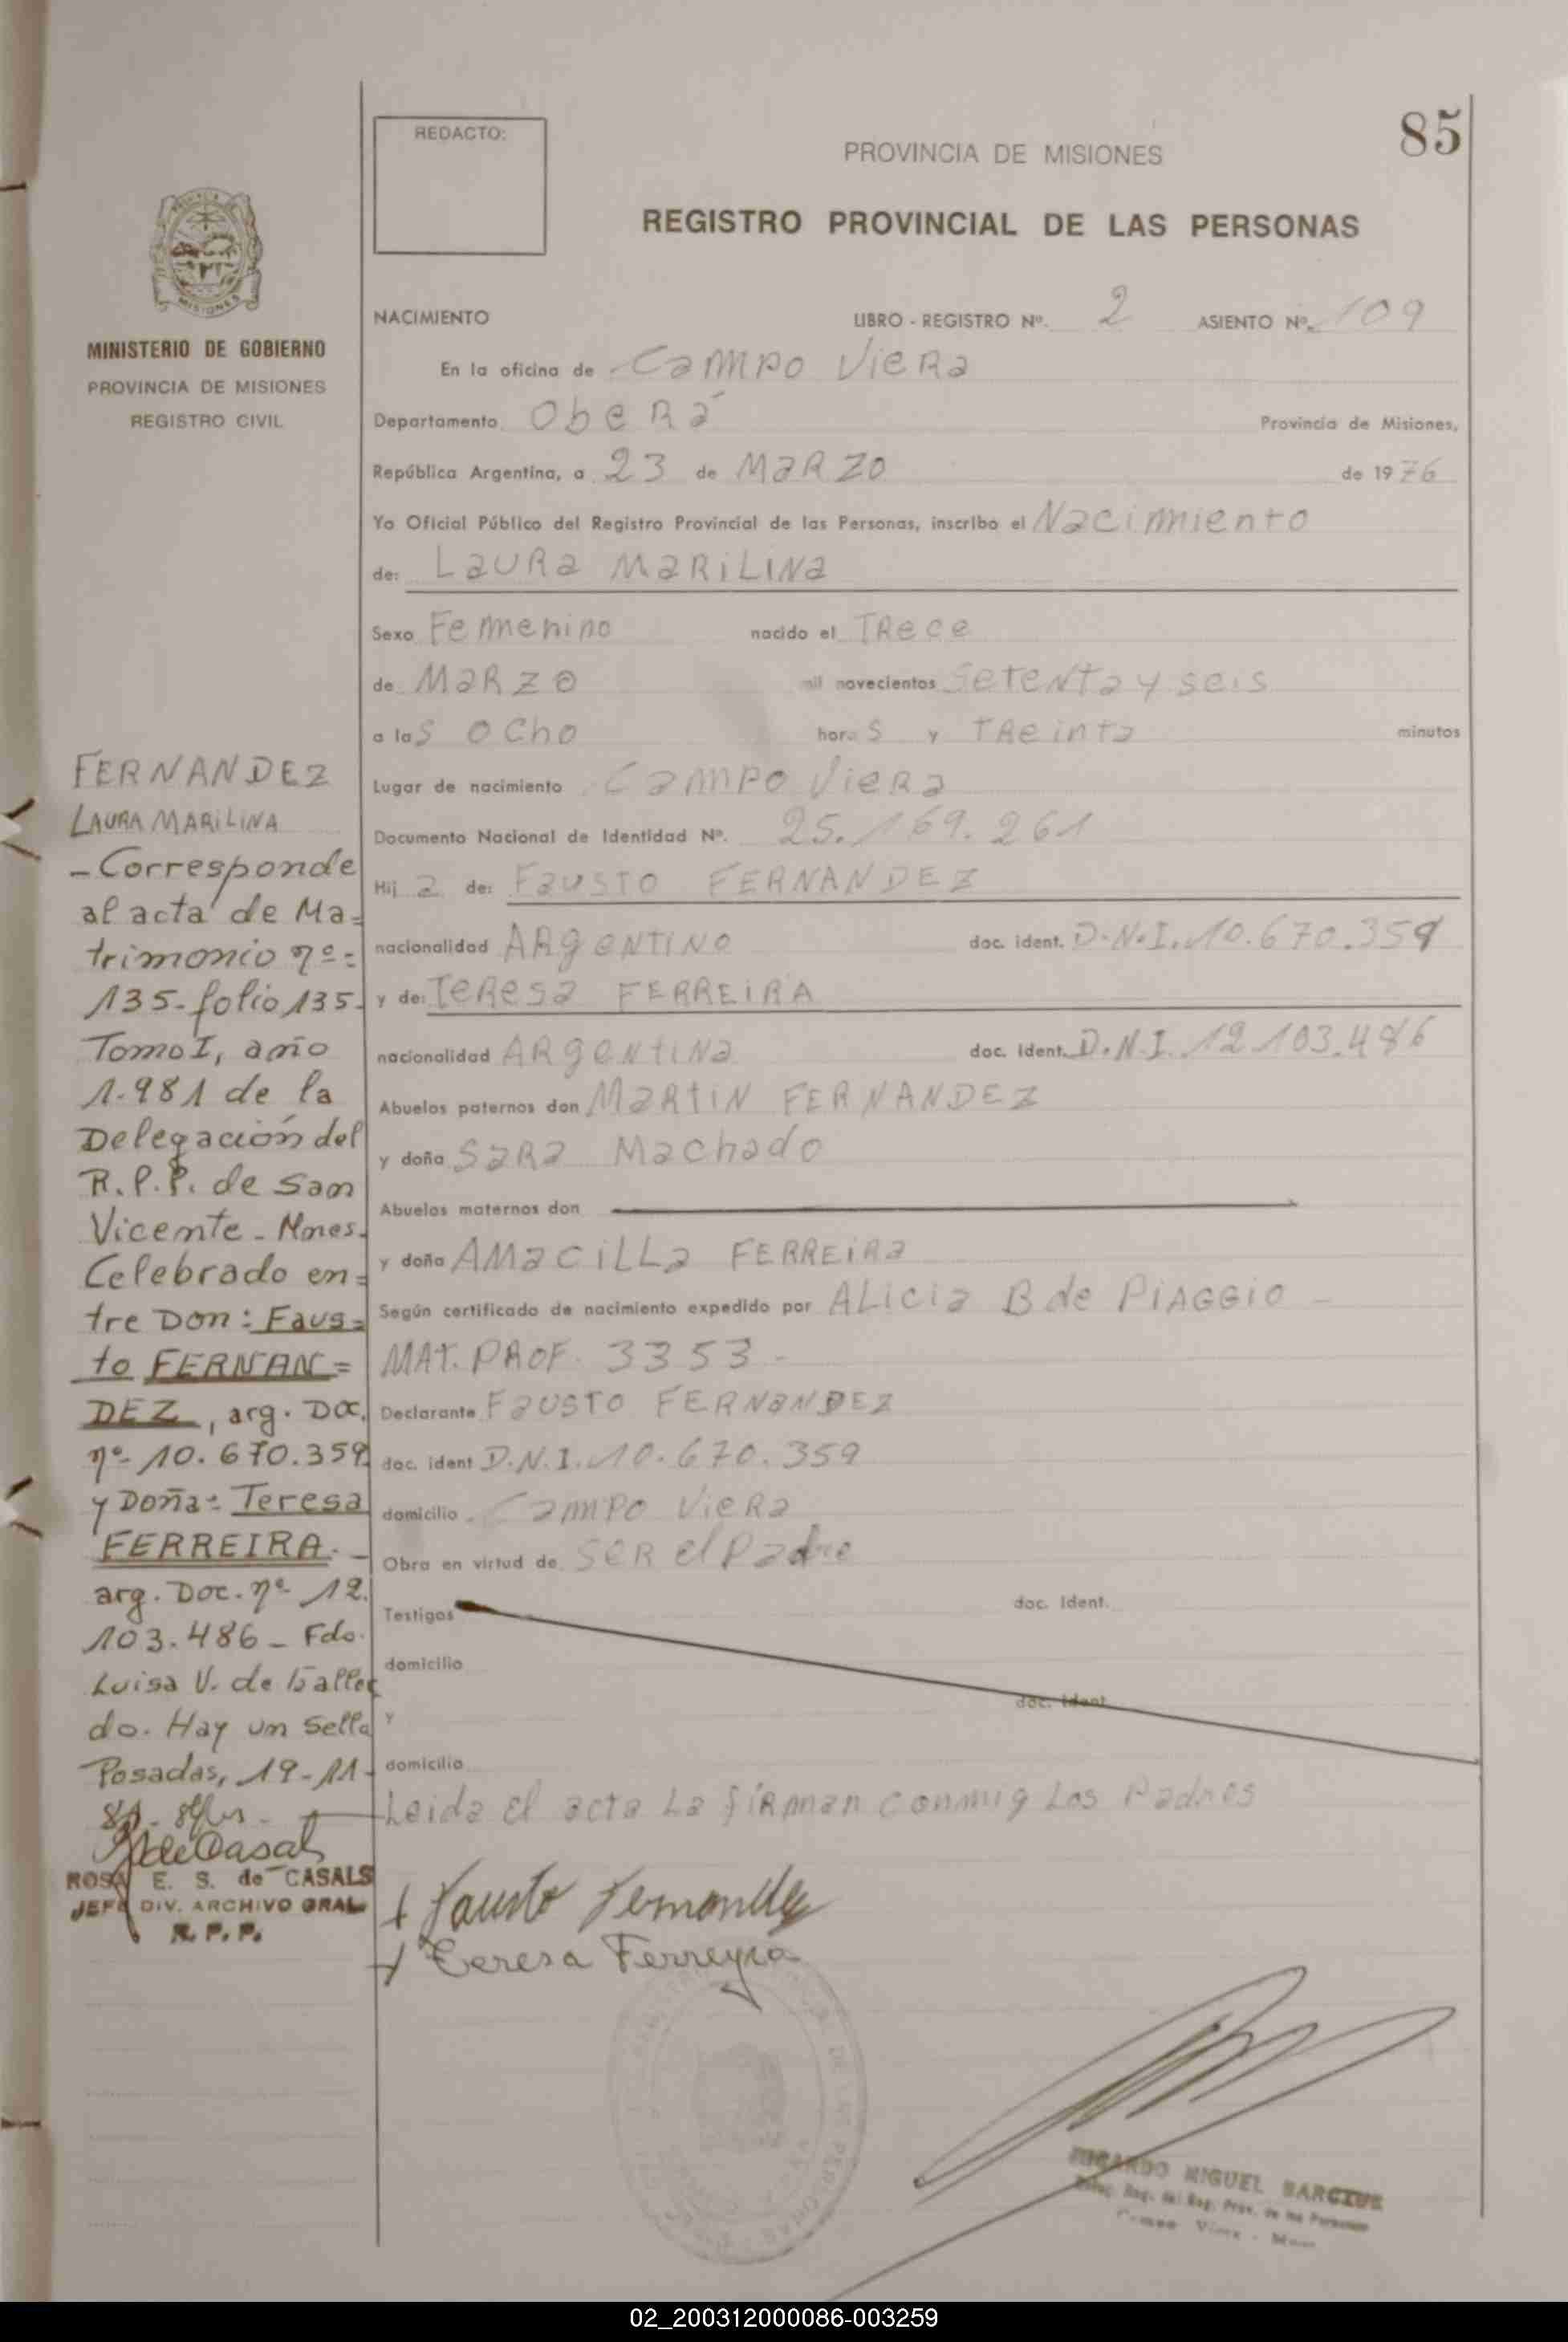 85
REDACTO:
PROVINCIA DE MISIONES
REGISTRO PROVINCIAL DE LAS PERSONAS
MISIONES
MINISTERIO DE GOBIERNO
PROVINCIA DE MISIONES
REGISTRO CIVIL
NACIMIENTO LIBRO - REGISTRO Nº. 2 ASIENTO Nº. 109
En la oficina de Campo Viera
Departamento Oberá Provincia de Misiones,
República Argentina, a 23 de Marzo de 1976
Yo Oficial Público del Registro Provincial de las Personas, inscribo el Nacimiento
de: Laura Marilina
Sexo Femenino nacido el Trece
de Marzo mil novecientos setenta y seis
a las ocho horas y treinta minutos
Lugar de nacimiento Campo Viera
Documento Nacional de Identidad Nº. 25.169.261
Hija de: Fausto FERNANDEZ
nacionalidad Argentino doc. ident. D.N.I. 10.670.359
y de: Teresa FERREIRA
nacionalidad Argentina doc. ident. D.N.I. 12.103.486
Abuelos paternos don Martin FERNANDEZ
y doña Sara Machado
Abuelos maternos don
y doña Amacilla FERREIRa
Según certificado de nacimiento expedido por Alicia B de PIAGGIO -
MAT. PROF. 3353 -
Declarante Fausto FERNaNDEZ
doc. ident D.N.I. 10.670.359
domicilio Campo Viera
Obra en virtud de ser el Padre
Testigos doc. ident.
domicilio
doc. ident
y
domicilio
Leida el acta la firman conmig los Padres
Fausto Fernandez
Teresa Ferreyra
RICARDO MIGUEL
FERNANDEZ
LAURA MARILINA
- Corresponde
al acta de Ma=
trimonio nº=
135-folio 135-
Tomo I, año
1.981 de la
Delegación del
R.P.P. de San
Vicente - Mnes.
Celebrado en=
tre Don: Faus=
to FERNAN=
DEZ, arg. Doc.
nº 10.670.359
y Doña: Teresa
FERREIRA. -
arg. Doc. nº 12.
103.486 - Fdo.
Luisa V. de
do. Hay un sello
Posadas, 19-11-
81.
ROSA E. S. de CASALS
JEFE DIV. ARCHIVO GRAL
R. P. P.
02_200312000086-003259